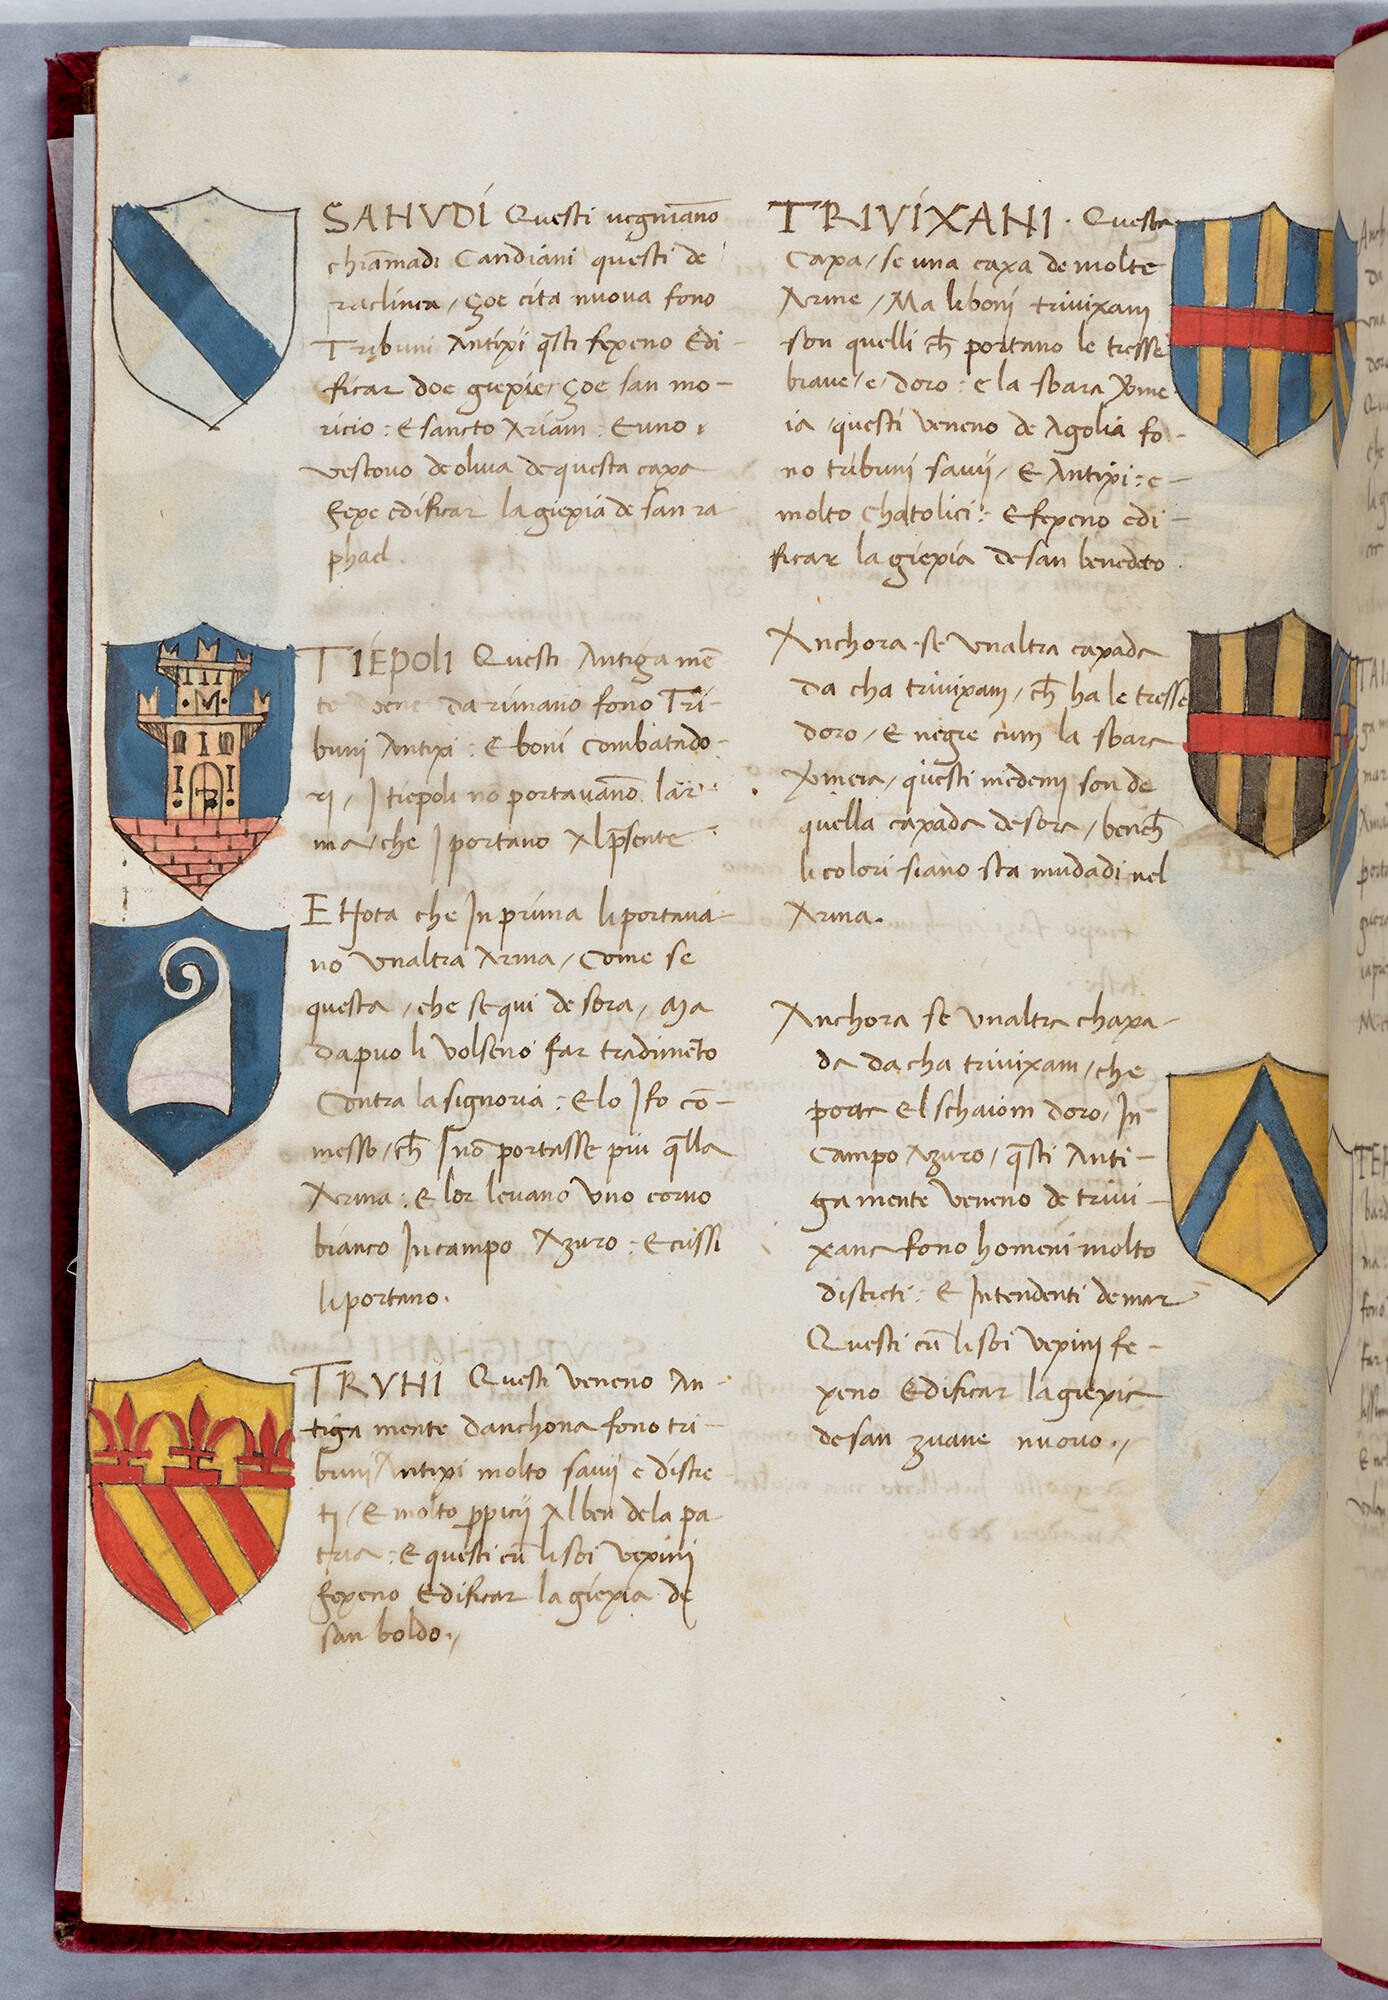 SANVDI Questi uegniano
chiamadi Candiani questi de
raclinea / Zoe cita nuova fono
Tribuni Antixi q̄sti fexeno Edi-
ficar doe giexie / Zoe san mo-
ricio : E sancto Ariam : E uno
vescouo de oliua de questa caxa
fexe edificar la giexia de san ra
phael.
TIEPOLI Questi Antiga mē
te vene da rimano fono Tri-
buni Antixi : E boni Combatado-
ri / I tiepoli nō portavano l'ar-
ma / che I portano Al p̄sente
E Nota che In prima li portaua-
no Vnaltra Arma / Come se
questa / che se qui de sora / Ma
dapuo li Volseno far tradimēto
Contra la signoria : E lo I fo cō-
messo / ch̄ I nō portasse piu q̄lla
Arma : E lor leuano Vno corno
bianco In campo Azuro : E cussi
li portano.
TRVNI Questi Veneno An-
tiga mente d'anchona fono tri-
buni Antixi molto sauij e discre
ti / E molto p̄picij Al ben de la pa-
tria : E questi cū li soi Vexini
fexeno Edificar la giexia de
san boldo./
TRIVIXANI . Questa
Caxa / se una caxa de molte
Arme / Ma li boni trivixani
son quelli ch̄ portano le tresse
blaue / e / doro : e la sbara Vrme
ia / questi Veneno de Agolia fo-
no tribuni sauij / E Antixi : e-
molto Chatolici : E fexeno edi-
ficar la giexia de san benedeto
Anchora se Vnaltra caxada
da cha trivixani / ch̄ ha le tresse
doro / E negre cum la sbara
Vrmeia / questi medemi son de
quella caxada de sora / bench̄
li colori siano sta mudadi nel
Arma.
Anchora se Vnaltra chaxa-
da da cha trivixani / che
porta El schaiom doro / In
Campo Azuro / q̄sti Anti-
ga mente Veneno de trivi-
xana fono homeni molto
discreti : E Intendenti de mar
Questi cū li soi Vexini fe-
xeno Edificar la giexia
de san zuane nuovo./